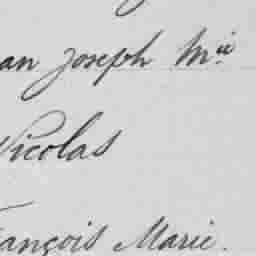 an Joseph Mie
Nicolas
François Marie.